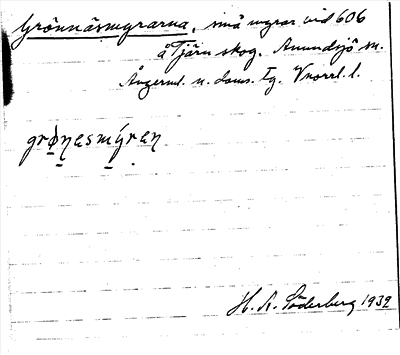 Grönnäsmyrarna, små myrar vid 606
å Tjärn skog. Anundsjö sn.
Ångerml. n. doms. Tg. Vnorrl. l.
grø̱ŋesmýreṇ
H. A. Söderberg 1932